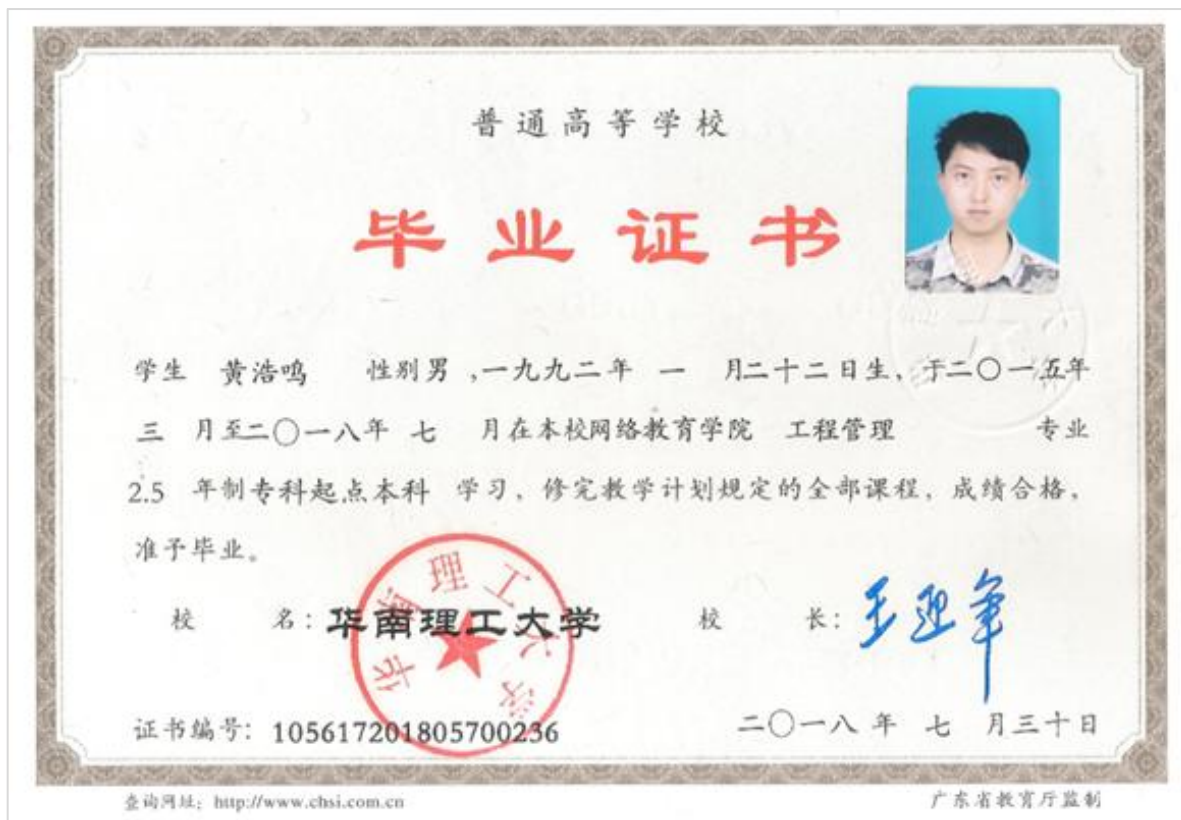 普通高等学校
毕业证书
学生 黄浩鸣 性别男 ,一九九二年 一 月二十二日生，于二〇一五年
三 月至二〇一八年 七 月在本校网络教育学院 工程管理 专业
2.5 年制专科起点本科 学习，修完教学计划规定的全部课程，成绩合格，
准予毕业。
校 名：华南理工大学 校 长：王迎军
华南理工大学
证书编号：105617201805700236 二〇一八 年 七 月三十日
查询网址：http://www.chsi.com.cn 广东省教育厅监制